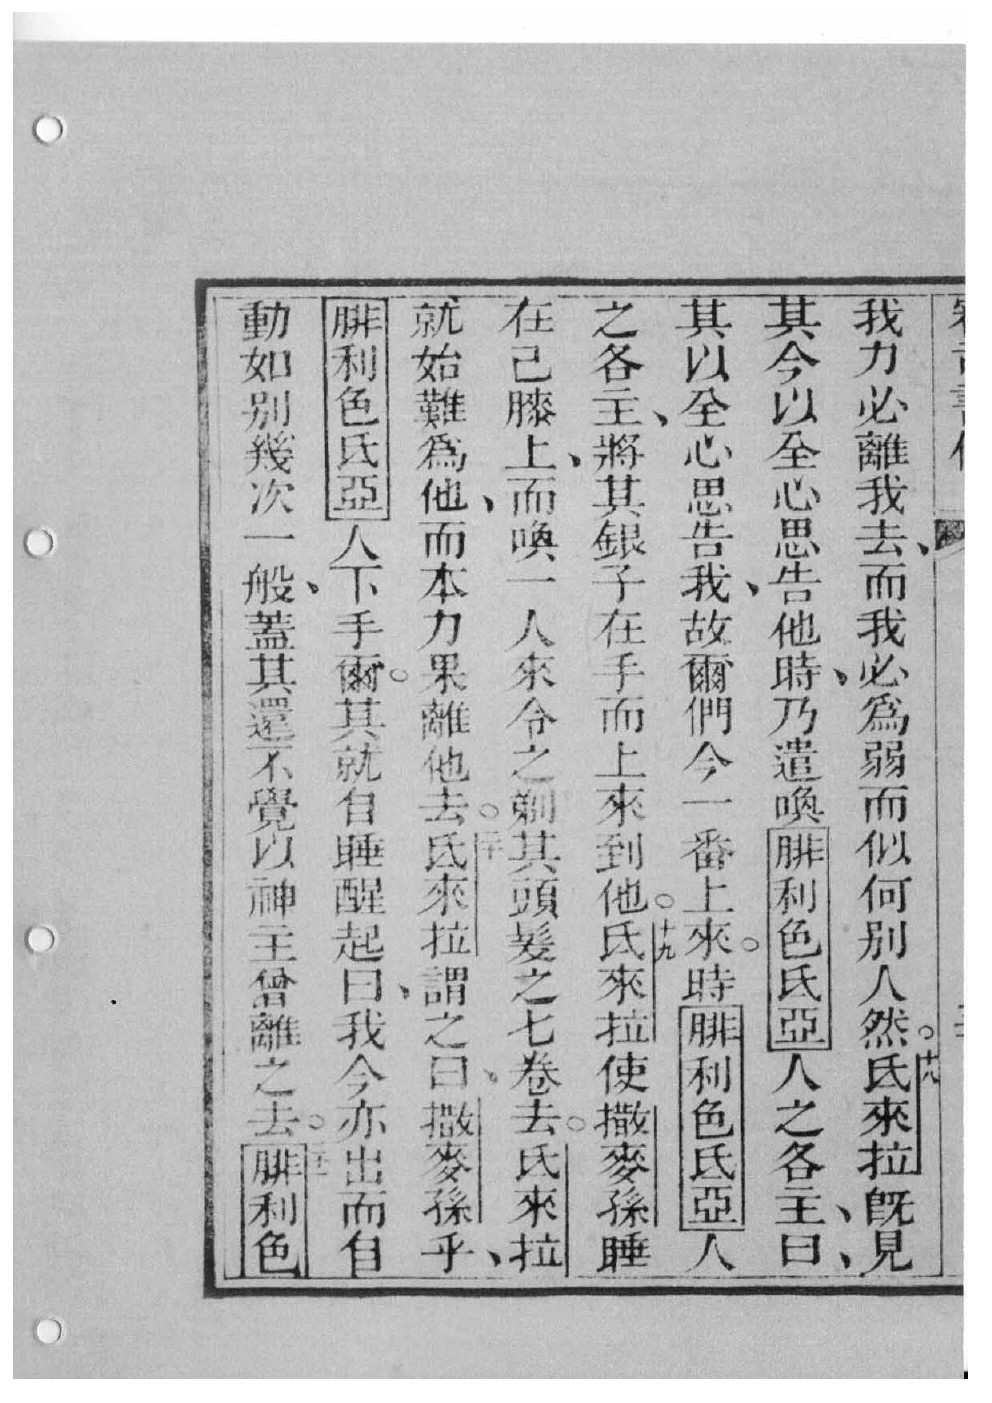 我力必離我去、而我必為弱而似何別人然。十八氐來拉旣見
其今以全心思告他時、乃遣喚腓利色氐亞人之各主、曰、
其以全心思告我、故爾們今一番上來。時腓利色氐亞人
之各主、將其銀子在手而上來到他。十九氐來拉使撒麥孫睡
在己膝上、而喚一人來令之剃其頭髮之七卷去。氐來拉
就始難為他、而本力果離他去。二十氐來拉謂之曰、撒麥孫乎、
腓利色氐亞人下手爾。其就自睡醒起曰、我今亦出而自
動如別幾次一般、蓋其還不覺以神主曾離之去。腓利色